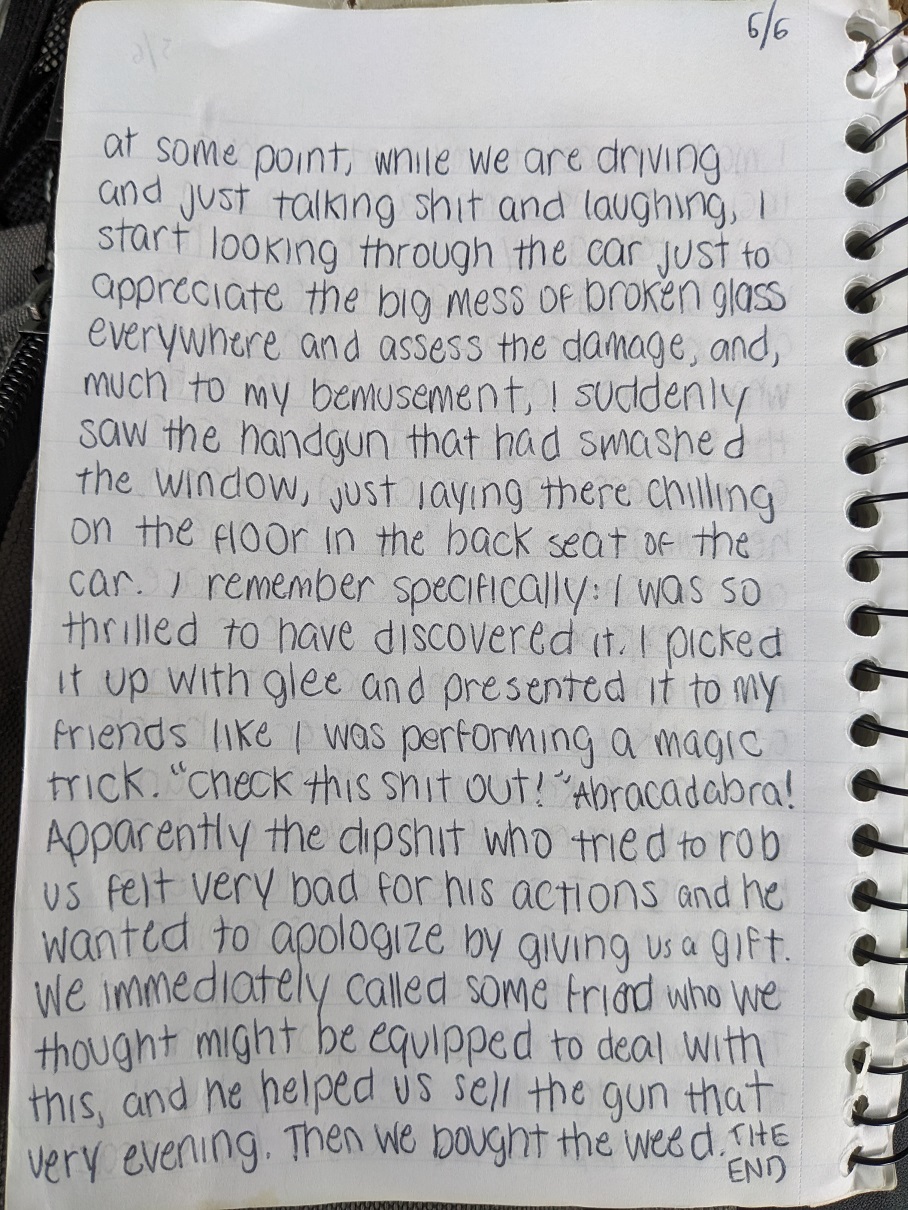 6/6
at some point, while we are driving
and just talking shit and laughing, I
start looking through the car just to
appreciate the big mess of broken glass
everywhere and assess the damage, and,
much to my bemusement, I suddenly
saw the handgun that had smashed
the window, just laying there chilling
on the floor in the back seat of the
car. I remember specifically: I was so
thrilled to have discovered it. I picked
it up with glee and presented it to my
friends like I was performing a magic
trick. "Check this shit out!" "Abracadabra!
Apparently the dipshit who tried to rob
us felt very bad for his actions and he
wanted to apologize by giving us a gift.
We immediately called some friend who we
thought might be equipped to deal with
this, and he helped us sell the gun that
very evening. Then we bought the weed. THE
END